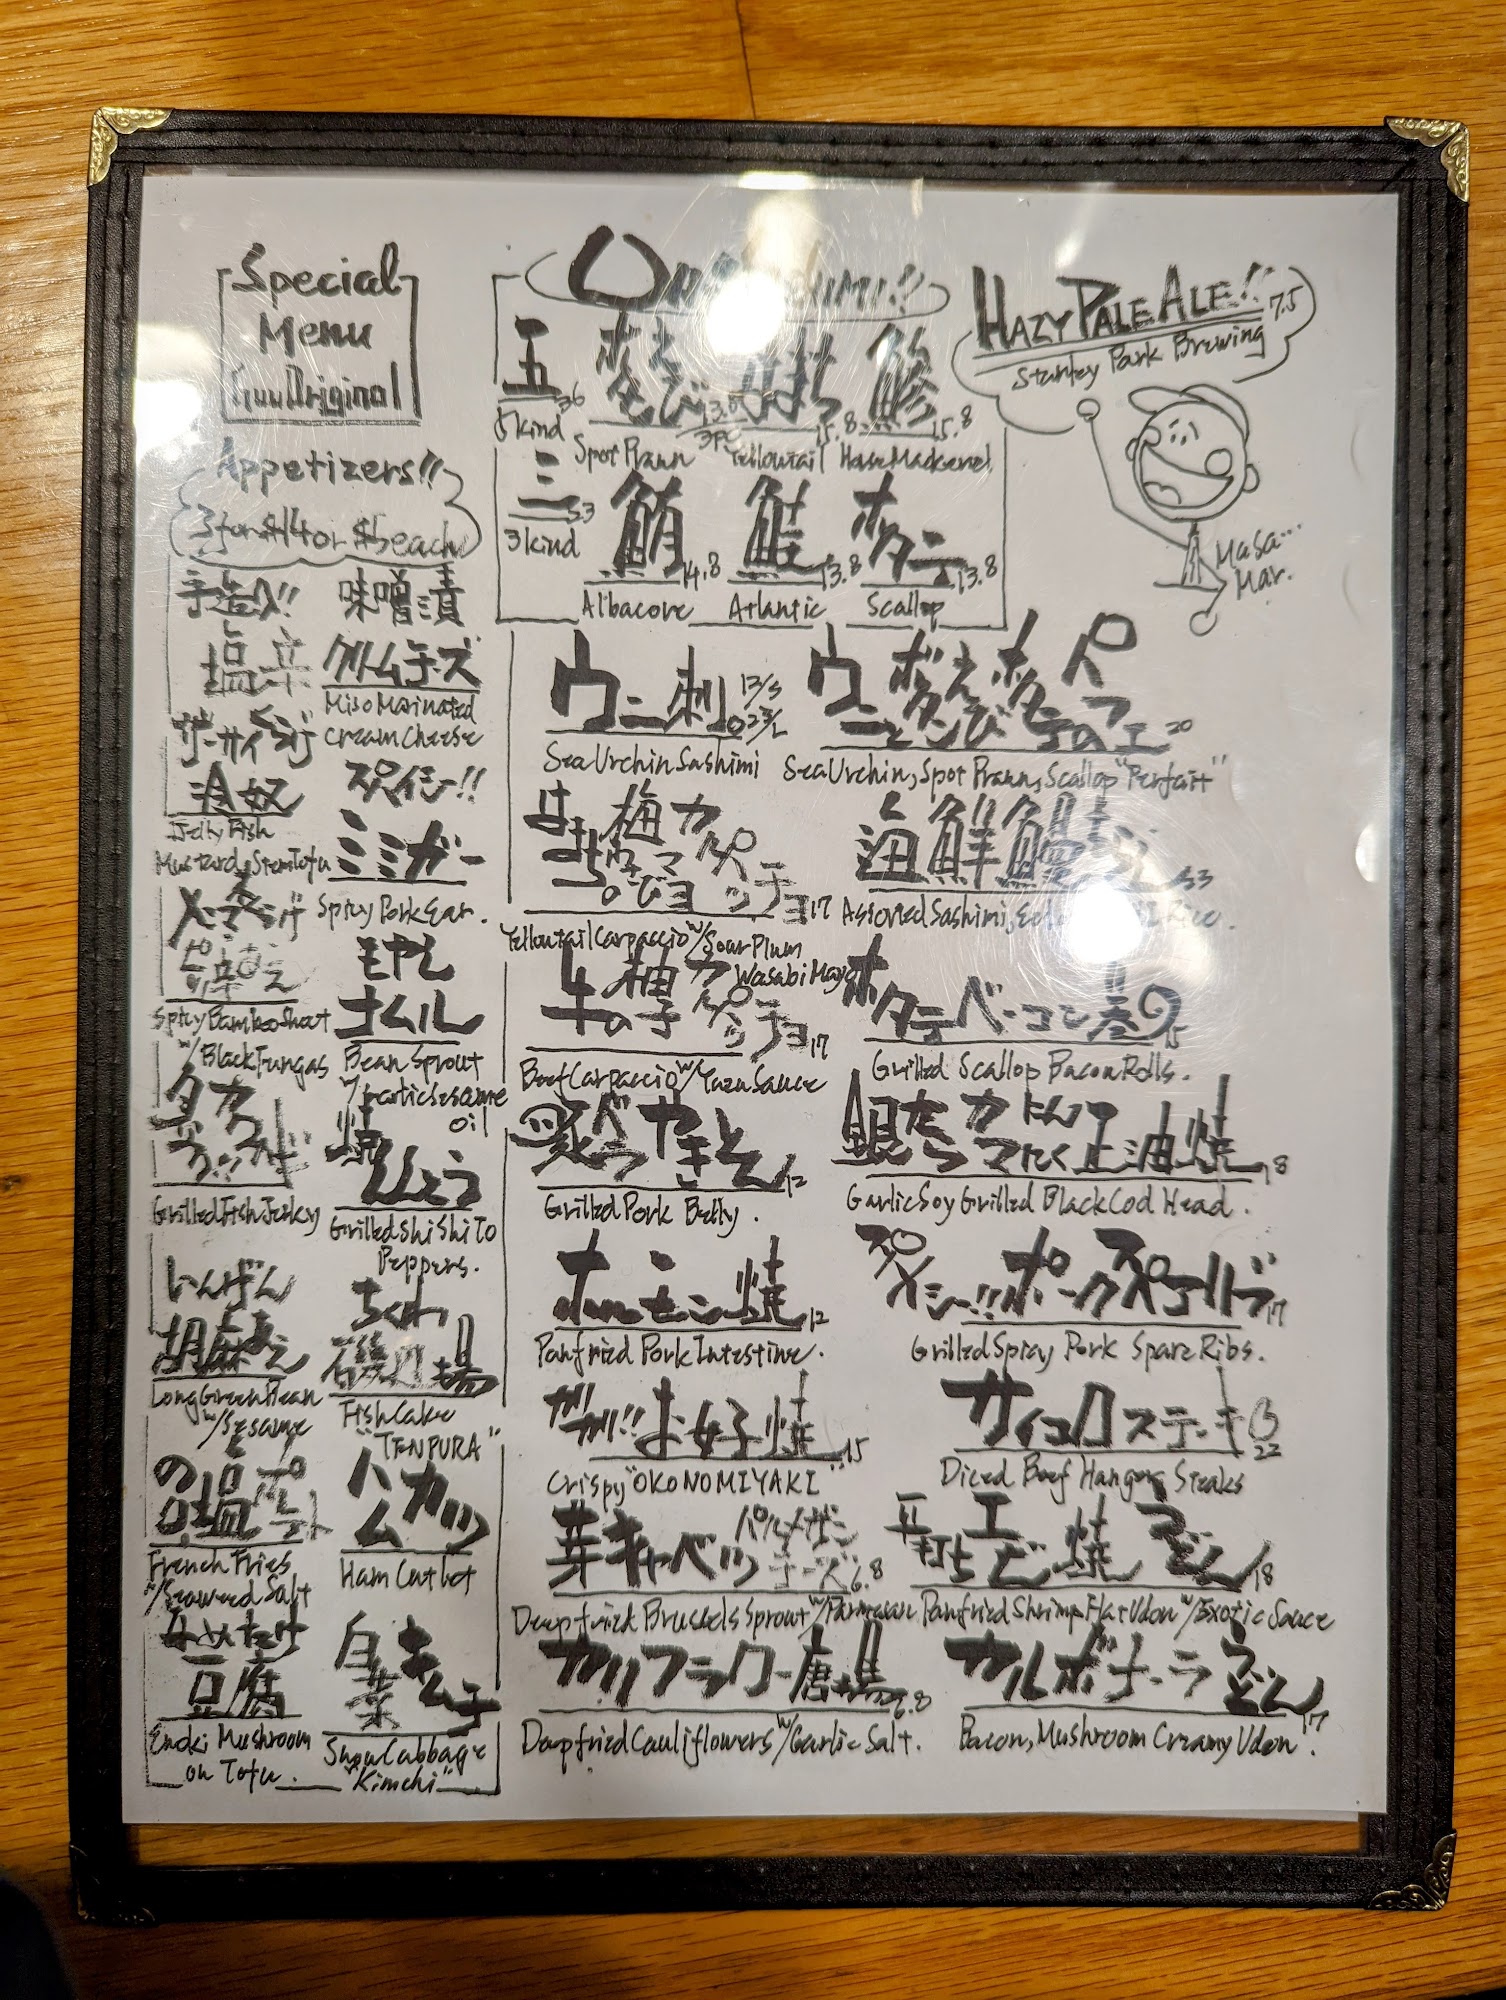 Special
Menu
Guu Original
Appetizers!!
3 for $14 or $5 each
手造り!!
塩辛
味噌漬
クリームチーズ
Miso Marinated
Cream Cheese
ザーサイ
冷奴
Jelly Fish
Mustard Stem Tofu
スパイシー!!
ミミガー
Spicy Pork Ear.
メンマ
Spicy Bamboo Shoot
w/Black Fungas
もやし
ナムル
Bean Sprout
w/garlic sesame
oil
Grilled Fish Jerky
焼ししとう
Grilled ShiShiTo
Peppers.
いんげん
胡麻あえ
Long Green Bean
w/Sesame
ちくわ
磯辺揚
Fish Cake
"TENPURA"
のり塩ポテト
French Fries
w/Seaweed Salt
ハムカツ
Ham Cutlet
なめたけ
豆腐
Enoki Mushroom
on Tofu.
白菜キムチ
Snow Cabbage
"Kimchi"
五 36
5 kind
ぼたんえび 13.8
3PC
Spot Prawn
はまち 15.8
Yellowtail
鯵 15.8
Horse Mackerel
三 23
3 kind
鮪 14.8
Albacore
鮭 13.8
Atlantic
ホタテ 13.8
Scallop
HAZY PALE ALE!! 7.5
Stanley Park Brewing
Masa...
Mar.
ウニ刺
Sea Urchin Sashimi
ウニとボタンえびホタテのパフェ 20
Sea Urchin, Spot Prawn, Scallop "Perfait"
はまち梅わさびマヨカルパッチョ 17
Yellowtail Carpaccio w/Sour Plum
Wasabi Mayo
海鮮
Assorted Sashimi,
牛の柚子カルパッチョ 17
Beef Carpaccio w/Yuzu Sauce
ホタテベーコン巻 15
Grilled Scallop Bacon Rolls.
豚バラやきとん 12
Grilled Pork Belly.
銀だらカマにんにく正油焼 18
Garlic Soy Grilled Black Cod Head.
ホルモン焼 12
Panfried Pork Intestine.
スパイシー!!ポークスペアリブ 17
Grilled Spicy Pork Spare Ribs.
ガリガリ!!お好み焼 15
Crispy "OKONOMIYAKI"
サイコロステーキ 22
Diced Beef Hanger Steaks
芽キャベツ パルメザンチーズ 6.8
Deepfried Brussels Sprout w/Parmesan
平打ちエビ焼うどん 18
Panfried Shrimp Flat Udon w/Exotic Sauce
カリフラワー唐揚 6.8
Deepfried Cauliflowers w/Garlic Salt.
カルボナーラうどん 17
Bacon, Mushroom Creamy Udon.